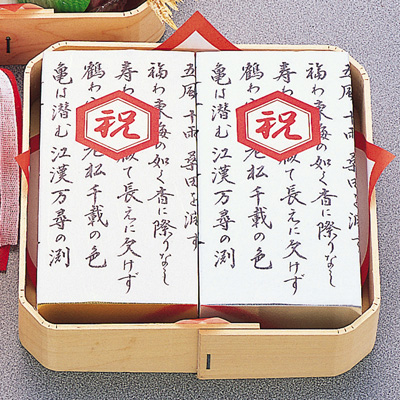 祝
五風十雨桑田を
福わ東海の如く杳に際りなし
寿わ 似て長えに欠けず
鶴わ 老松千載の色
亀は潜む江漢万尋の渕
祝
五風十雨桑田を
福わ東海の如く杳に際りなし
寿わ 似て長えに欠けず
鶴わ 老松千載の色
亀は潜む江漢万尋の渕